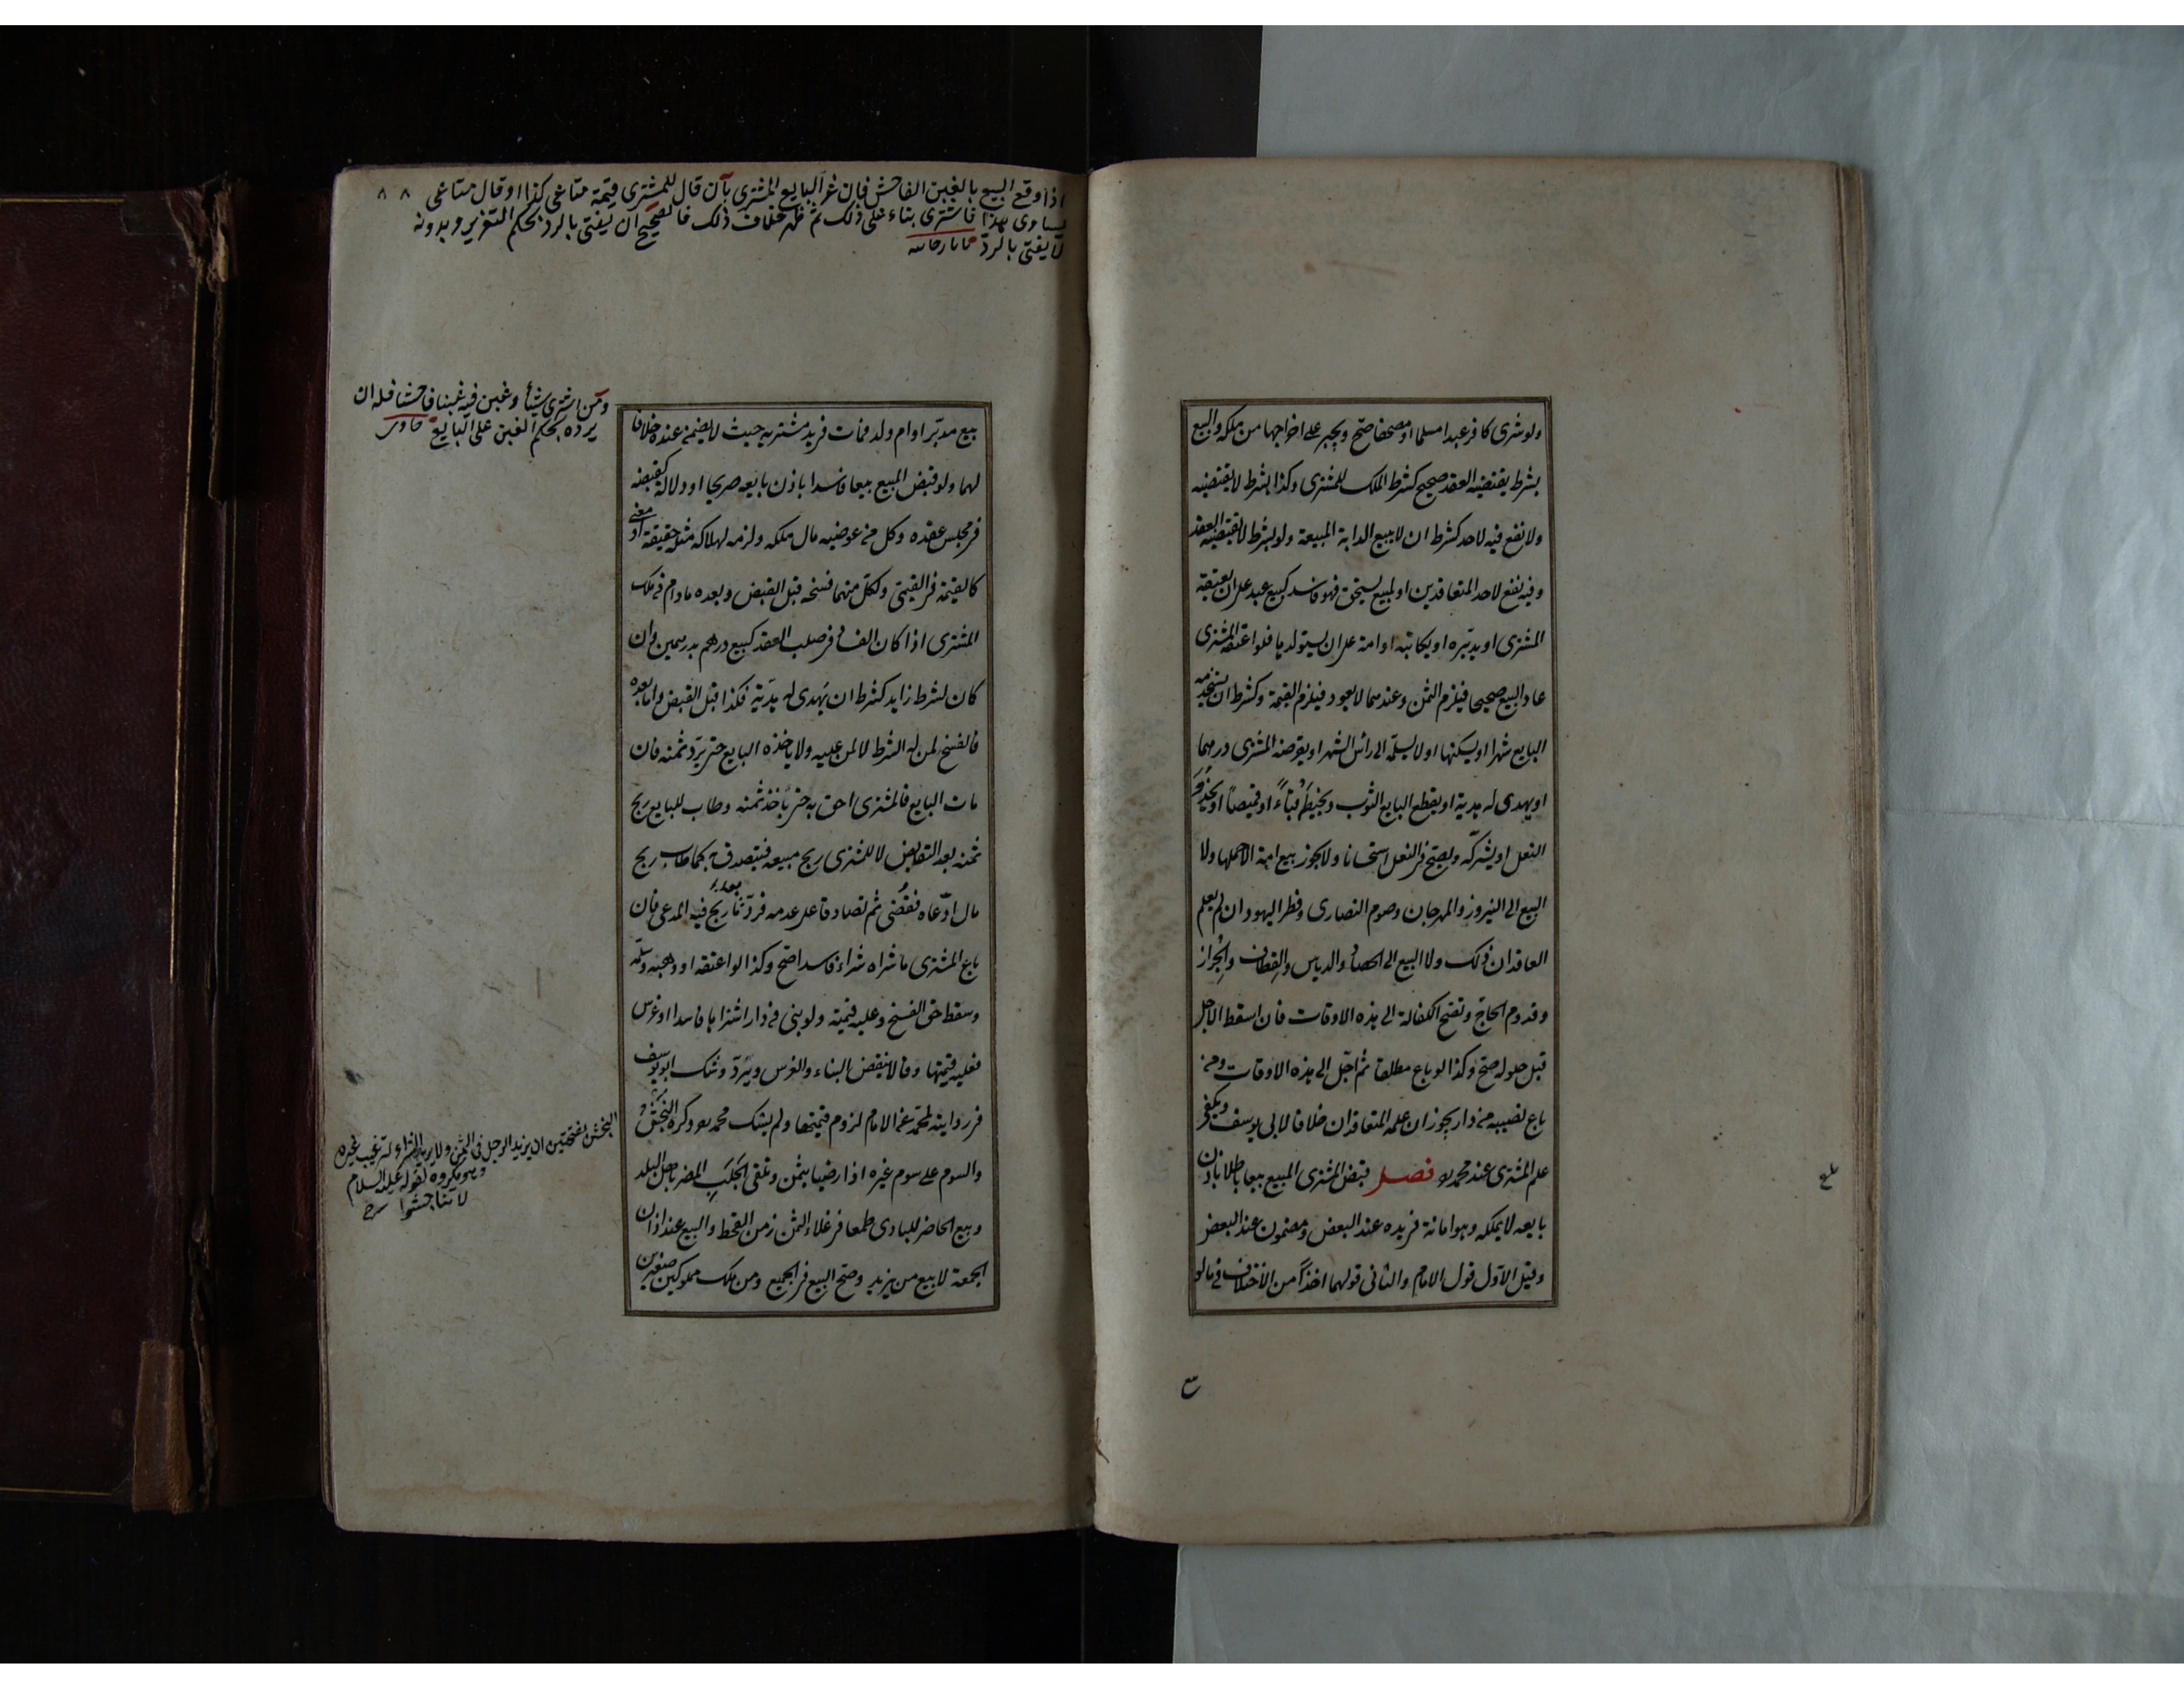 ولو شرى كافر عبدا مسلما او مصحفا صح ويجبر على اخراجهما من ملكه والبيع
بشرط يقتضيه العقد صحيح كشرط الملك للمشترى وكذا بشرط لا يقتضيه
ولا نفع فيه لاحد كشرط ان لا يبيع الدابة المبيعة ولو بشرط لا يقتضيه العقد
وفيه نفع لاحد المتعاقدين او لمبيع يستحق فهو فاسد كبيع عبد على ان يعتقه
المشترى او يدبره او يكاتبه او امة على ان يستولدها فلو اعتقه المشترى
عاد البيع صحيحا فيلزم الثمن وعندهما لا يعود فيلزم القيمة وكشرط ان يستخدمه
البايع شهرا او يسكنها او لا يسلمه الى رأس الشهر او يقرضه المشترى درهما
او يهدى له هدية او يقطع البايع الثوب ويخيطه قباءً او قميصاً او يحذو
النعل او يشركه ويصح فى النعل استحسانا ولا يجوز بيع امة الا حملها ولا
البيع الى النيروز والمهرجان وصوم النصارى وفطر اليهود ان لم يعلم
العاقدان ذلك ولا البيع الى الحصاد والدياس والقطاف والجزاز
وقدوم الحاج وتصح الكفالة الى هذه الاوقات فان اسقط الاجل
قبل حلوله صح وكذا لو باع مطلقا ثم اجّل الى هذه الاوقات ومن
باع نصيبه من دار يجوز ان علمه المتعاقدان خلافا لابى يوسف ويكفى
علم المشترى عند محمد فصل قبض المشترى المبيع بيعا باطلا باذن
بايعه لا يملكه وهو امانة فى يده عند البعض ومضمون عند البعض
وقيل الاول قول الامام والثانى قولهما اخذاً من الاختلاف فيما لو
بلغ
اذا وقع البيع بالغبن الفاحش فان غرّ البايع المشترى بأن قال للمشترى قيمة متاعى كذا او قال متاعى
يساوى بهذا فاشترى بناء على ذلك ثم ظهر خلاف ذلك فالصحيح ان يفتى بالرد بحكم التغرير وبدونه
لا يفتى بالردّ تاتارخانيه
٨٨
ومن اشترى شيئا وغبن فيه غبنا فاحشا فله ان
يرده بحكم الغبن على البايع حاوى
بيع مدبّر او ام ولد فمات فى يد مشتريه حيث لا يضمن عنده خلافا
لهما ولو قبض المبيع بيعا فاسدا باذن بايعه صريحا او دلالة كقبضه
فى مجلس عقده وكل من عوضيه مال ملكه ولزمه لهلاكه مثله حقيقة او معنى
كالقيمة فى القيمى ولكل منهما فسخه قبل القبض وبعده ما دام فى ملك
المشترى اذا كان الفساد فى صلب العقد كبيع درهم بدرهمين وان
كان لشرط زايد كشرط ان يهدى له هدية فكذا قبل القبض واما بعده
فالفسخ لمن له الشرط لا لمن عليه ولا ياخذه البايع حتى يردّ ثمنه فان
مات البايع فالمشترى احق به حتى يأخذ ثمنه وطاب للبايع ربح
ثمنه بعد التقابض لا للمشترى ربح مبيعه فيتصدق به كما طاب ربح
مال ادّعاه فقضى ثم تصادقا على عدمه فردّ بعد ما ربح فيه المدعى فان
باع المشترى ما شراه شراء فاسدا صح وكذا لو اعتقه او وهبه وسلّمه
وسقط حق الفسخ وعليه قيمته ولو بنى فى دار اشتراها فاسدا او غرس
فعليه قيمتها وقالا ينقض البناء والغرس ويردّ وشك ابو يوسف
فى روايته لمحمد عن الامام لزوم قيمتها ولم يشك محمد وكره النجش
والسوم على سوم غيره اذا رضيا بثمن وتلقى الجلب المضر باهل البلد
وبيع الحاضر للبادى طمعا فى غلاء الثمن زمن القحط والبيع عند اذان
الجمعة لا بيع من يزيد وصح البيع فى الجميع ومن ملك مملوكين صغيرين
النجش بفتحتين ان يزيد الرجل فى الثمن ولا يريد الشراء لترغيب غيره
وهو مكروه لقوله عليه السلام
لا تناجشوا